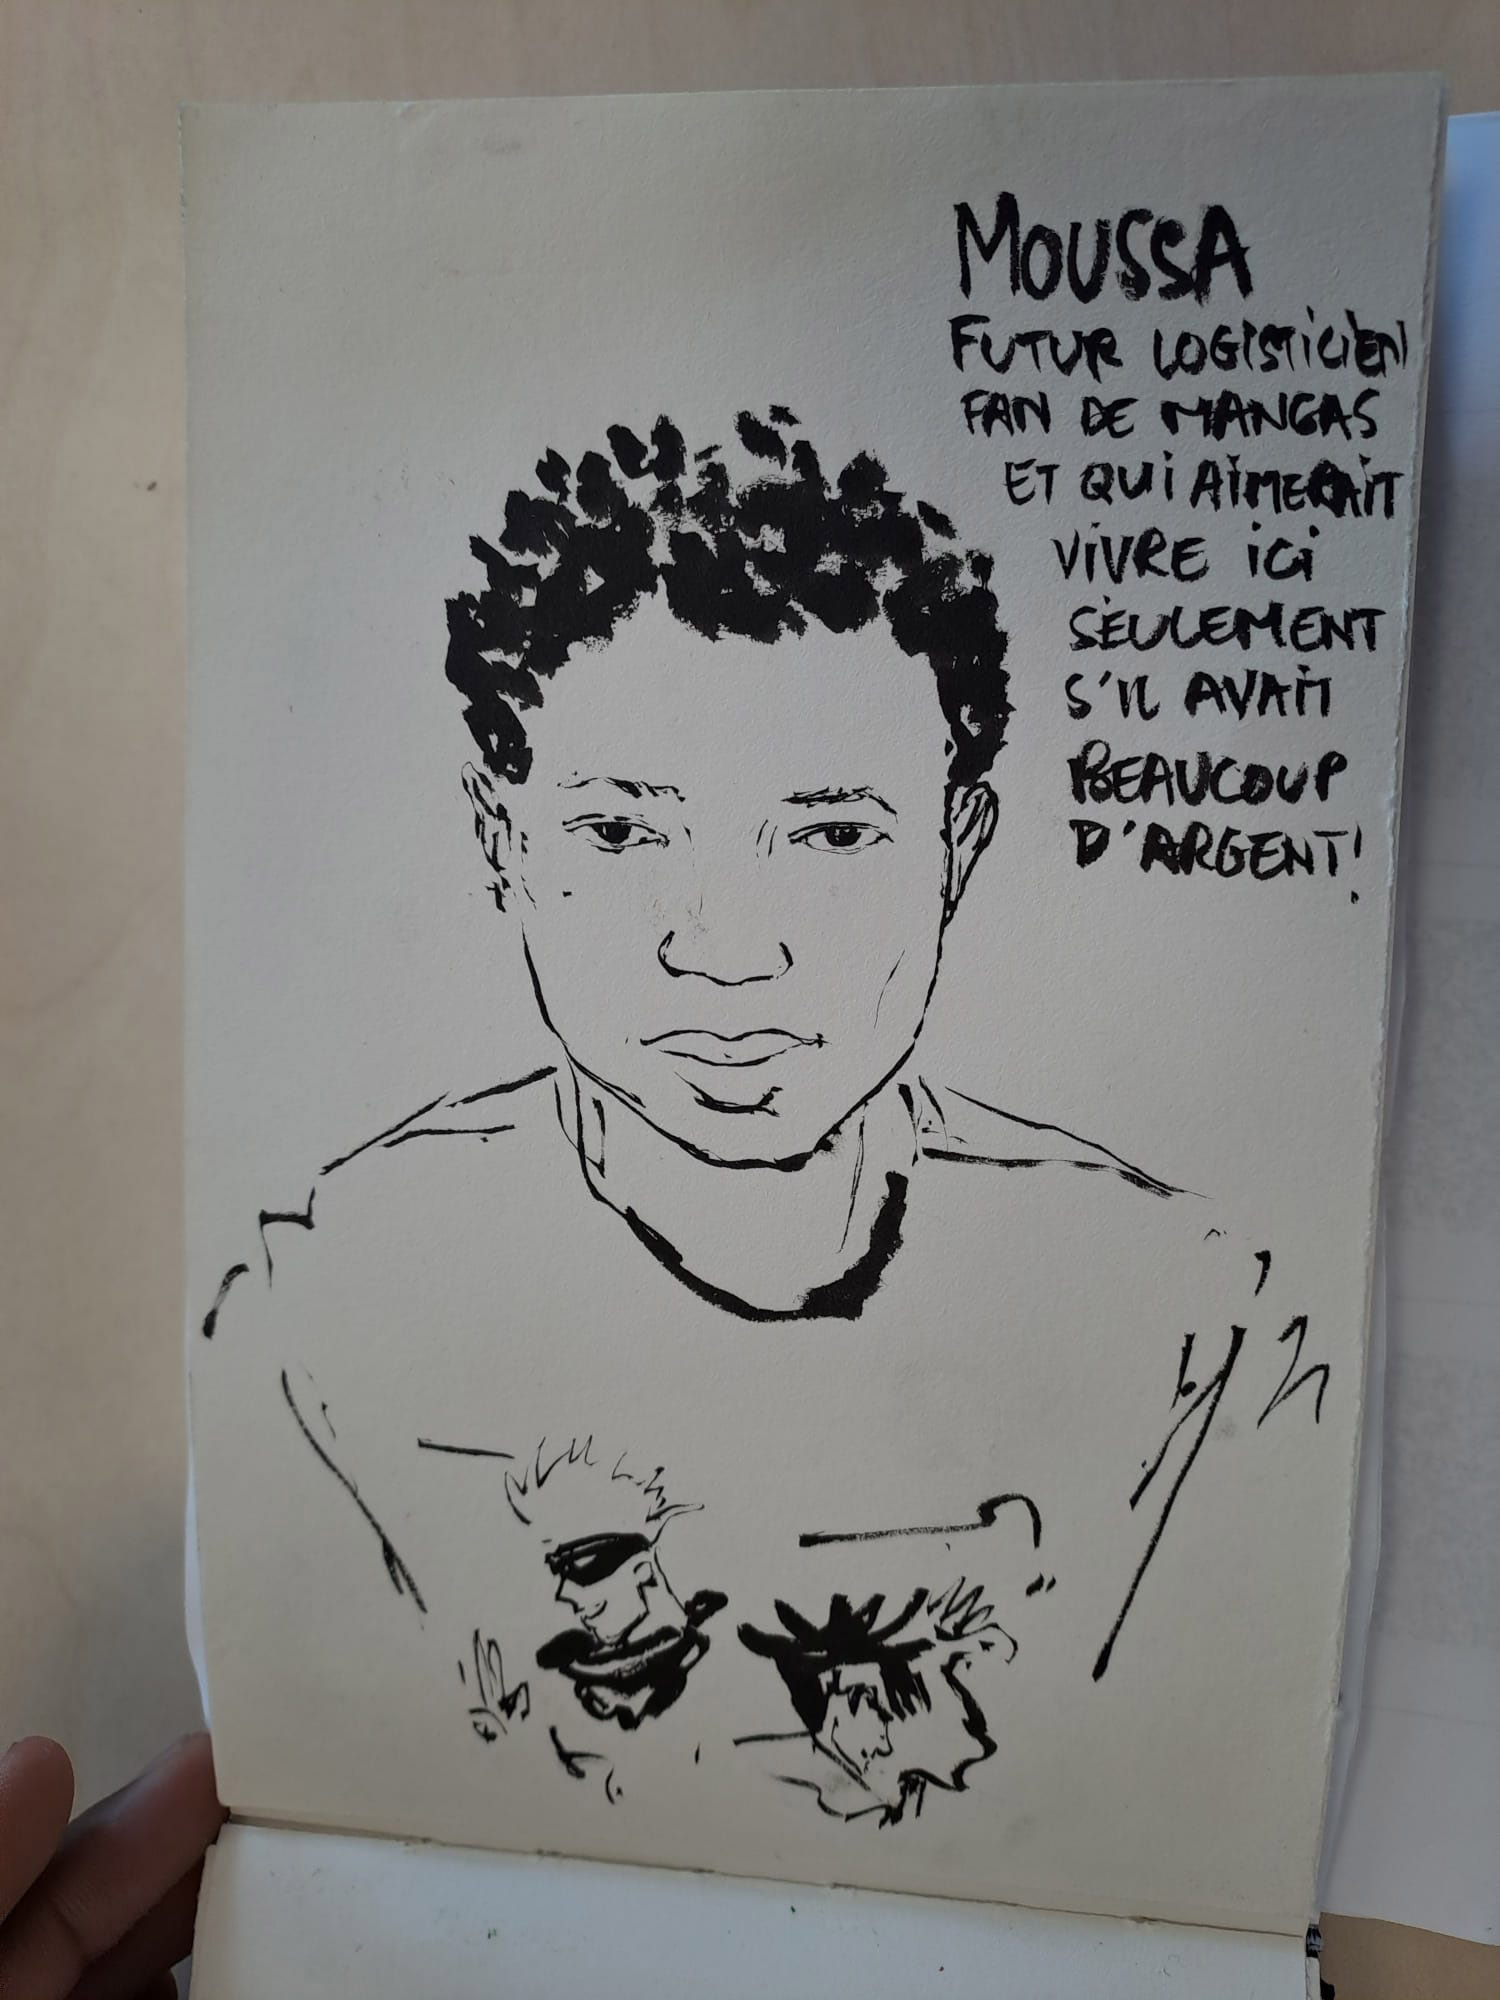 MOUSSA
FUTUR LOGISTICIEN
FAN DE MANGAS
ET QUI AIMERAIT
VIVRE ICI
SEULEMENT
S'IL AVAIT
BEAUCOUP
D'ARGENT!